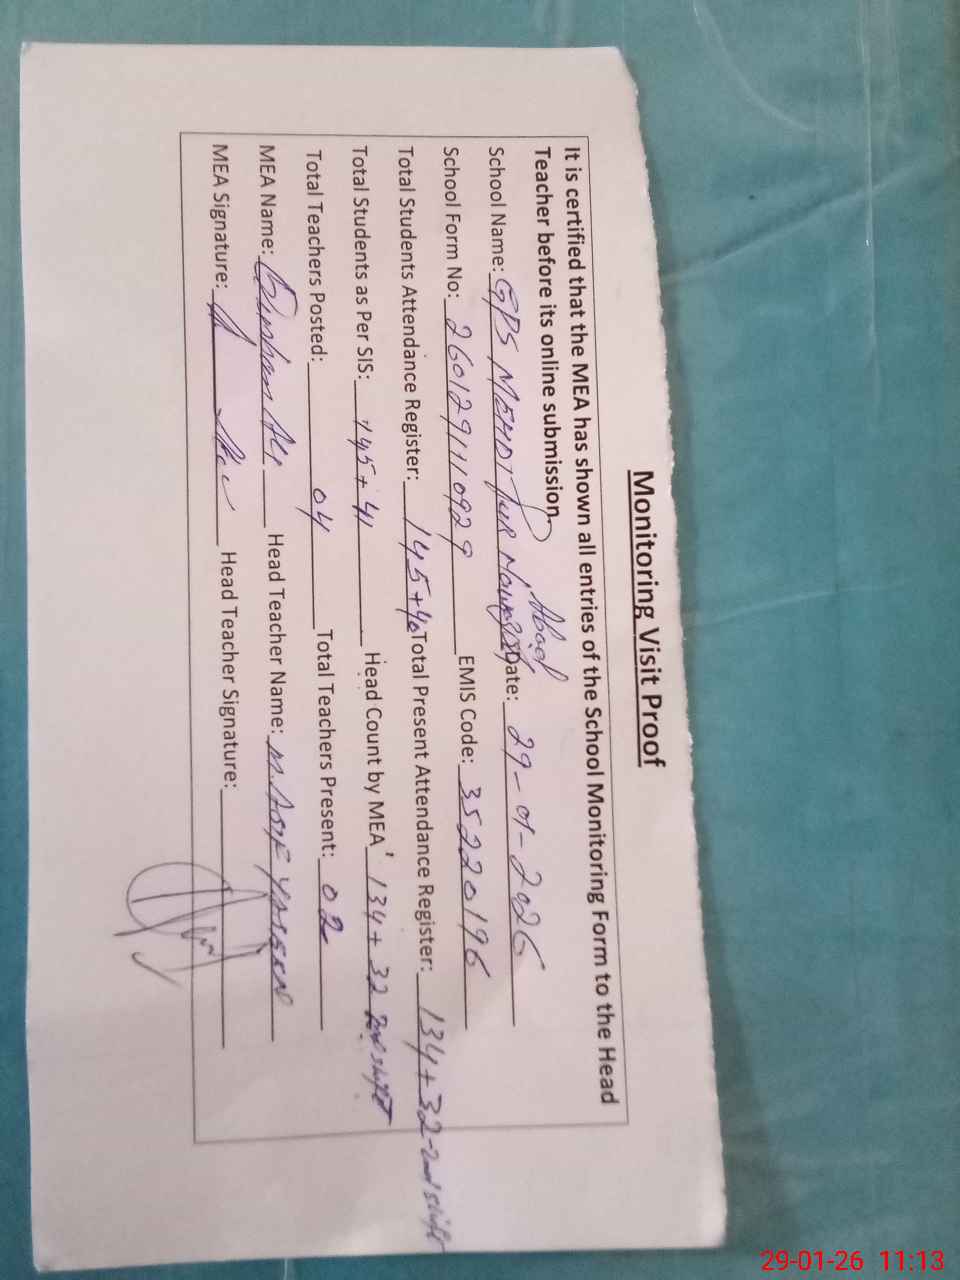 Monitoring Visit Proof
It is certified that the MEA has shown all entries of the School Monitoring Form to the Head
Teacher before its online submission.
Abad
School Name: GPS MEHDI PUR Date: 29-01-2026
School Form No: 2601291110929 EMIS Code: 35220196
Total Students Attendance Register: 145+40 Total Present Attendance Register: 134+32-2nd shift
Total Students as Per SIS: 145+41 Head Count by MEA 134+32 2nd shift
Total Teachers Posted: 04 Total Teachers Present: 02
MEA Name: Ali Head Teacher Name: M. ASIF YASEEN
MEA Signature: Head Teacher Signature:
29-01-26 11:13